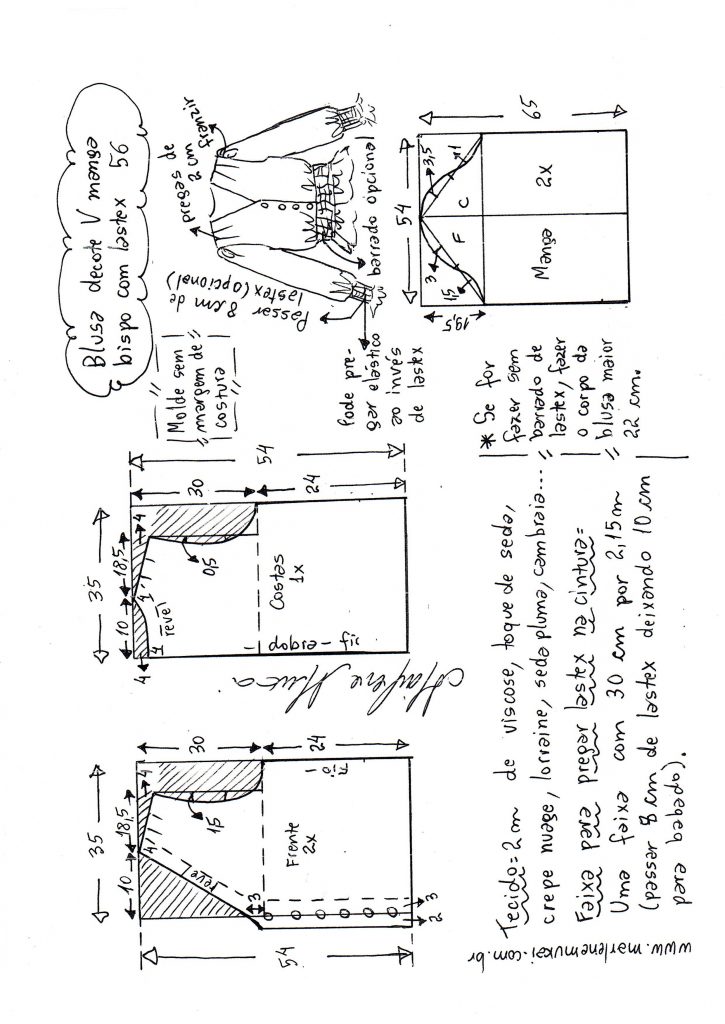 Blusa decote V manga
bispo com lastex 56
Molde sem
margem de
costura
pregas de
2 cm
franzir
Passar
8 cm de
lastex (opcional)
barrado opcional
Pode pre-
gar elástico
ao invés
de lastex
54
65
19,5
3
1,5
3,5
1
F
C
Manga
2X
* Se for
fazer sem
barrado de
lastex, fazer
o corpo da
blusa maior
22 cm.
35
10
18,5
4
30
24
54
4
4
revel
0,5
Costas
1x
fio - dobra -
Marlene Mukai
35
10
18,5
4
30
24
54
4
revel
1,5
3
Frente
2x
Fio -
2
3
Tecido = 2 m de viscose, toque de seda,
crepe nuage, lorraine, seda pluma, cambraia...
Faixa para pregar lastex na cintura =
Uma faixa com 30 cm por 2,15 m
(passar 8 cm de lastex deixando 10 cm
para babado).
www.marlenemukai.com.br